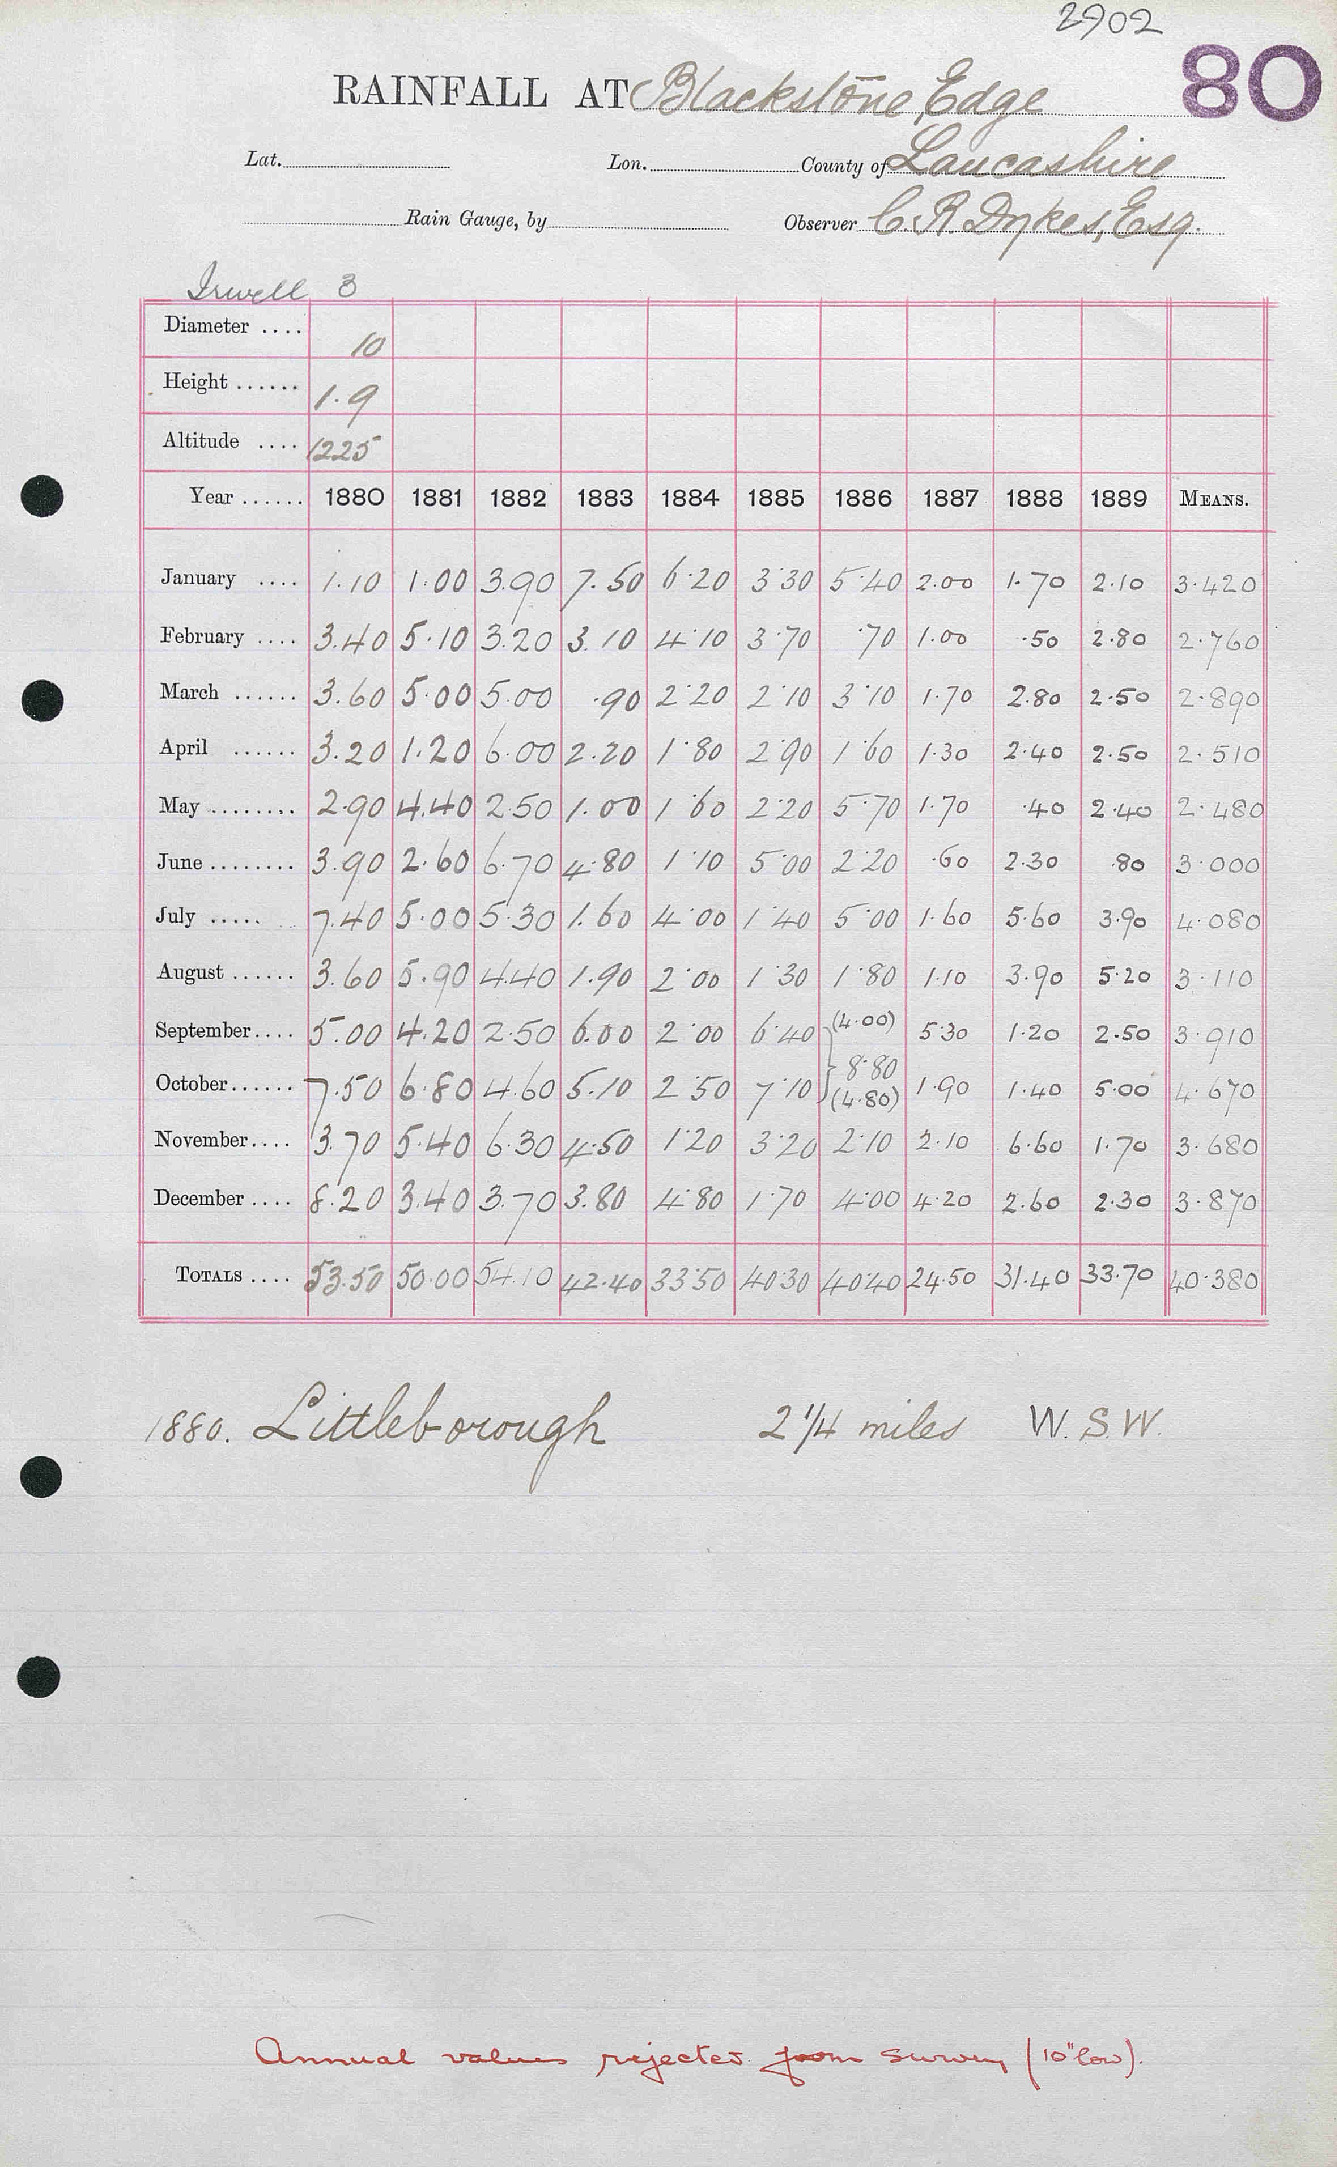 2902
80
RAINFALL AT Blackstone Edge
Lat. Lon. County of Lancashire
Rain Gauge, by Observer C. R. Dykes, Esq.
Irwell 3
Diameter .... 10
Height ...... 1.9
Altitude .... 1225
Year ...... 1880 1881 1882 1883 1884 1885 1886 1887 1888 1889 MEANS.
January .... 1.10 1.00 3.90 7.50 6.20 3.30 5.40 2.00 1.70 2.10 3.420
February .... 3.40 5.10 3.20 3.10 4.10 3.70 .70 1.00 .50 2.80 2.760
March ...... 3.60 5.00 5.00 .90 2.20 2.10 3.10 1.70 2.80 2.50 2.890
April ...... 3.20 1.20 6.00 2.20 1.80 2.90 1.60 1.30 2.40 2.50 2.510
May ........ 2.90 4.40 2.50 1.00 1.60 2.20 5.70 1.70 .40 2.40 2.480
June ........ 3.90 2.60 6.70 4.80 1.10 5.00 2.20 .60 2.30 .80 3.000
July ..... 7.40 5.00 5.30 1.60 4.00 1.40 5.00 1.60 5.60 3.90 4.080
August ...... 3.60 5.90 4.40 1.90 2.00 1.30 1.80 1.10 3.90 5.20 3.110
September .... 5.00 4.20 2.50 6.00 2.00 6.40 (4.00) 5.30 1.20 2.50 3.910
8.80
October ...... 7.50 6.80 4.60 5.10 2.50 7.10 (4.80) 1.90 1.40 5.00 4.670
November .... 3.70 5.40 6.30 4.50 1.20 3.20 2.10 2.10 6.60 1.70 3.680
December .... 8.20 3.40 3.70 3.80 4.80 1.70 4.00 4.20 2.60 2.30 3.870
TOTALS .... 53.50 50.00 54.10 42.40 33.50 40.30 40.40 24.50 31.40 33.70 40.380
1880. Littleborough 2 1/4 miles W.S.W.
Annual values rejected from survey (10" low).